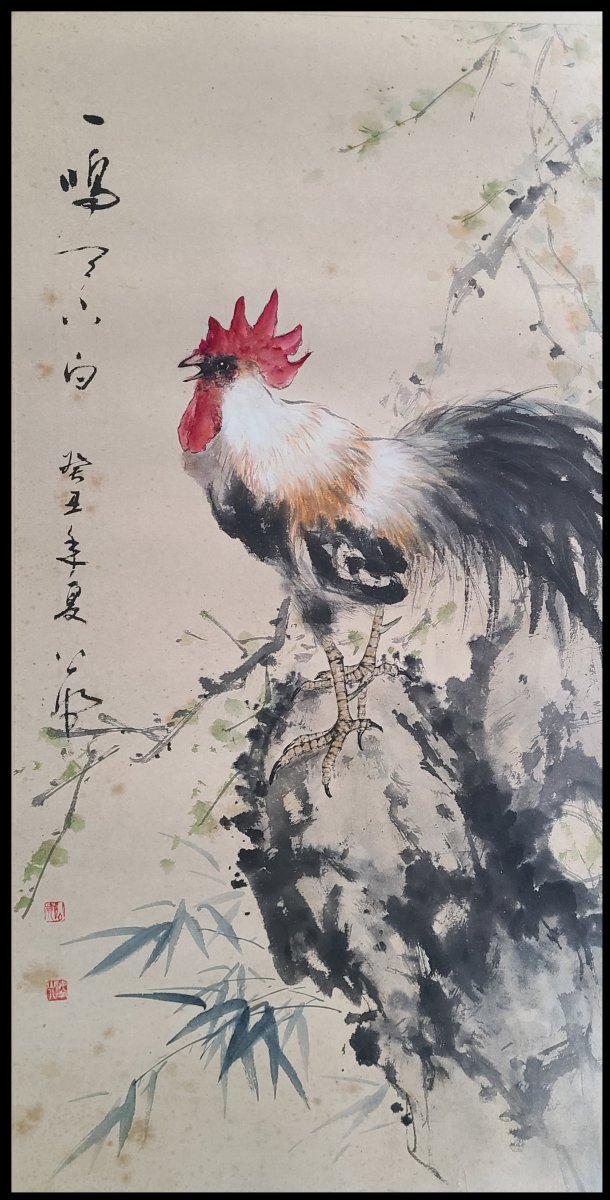 一鳴天下白 癸丑年夏